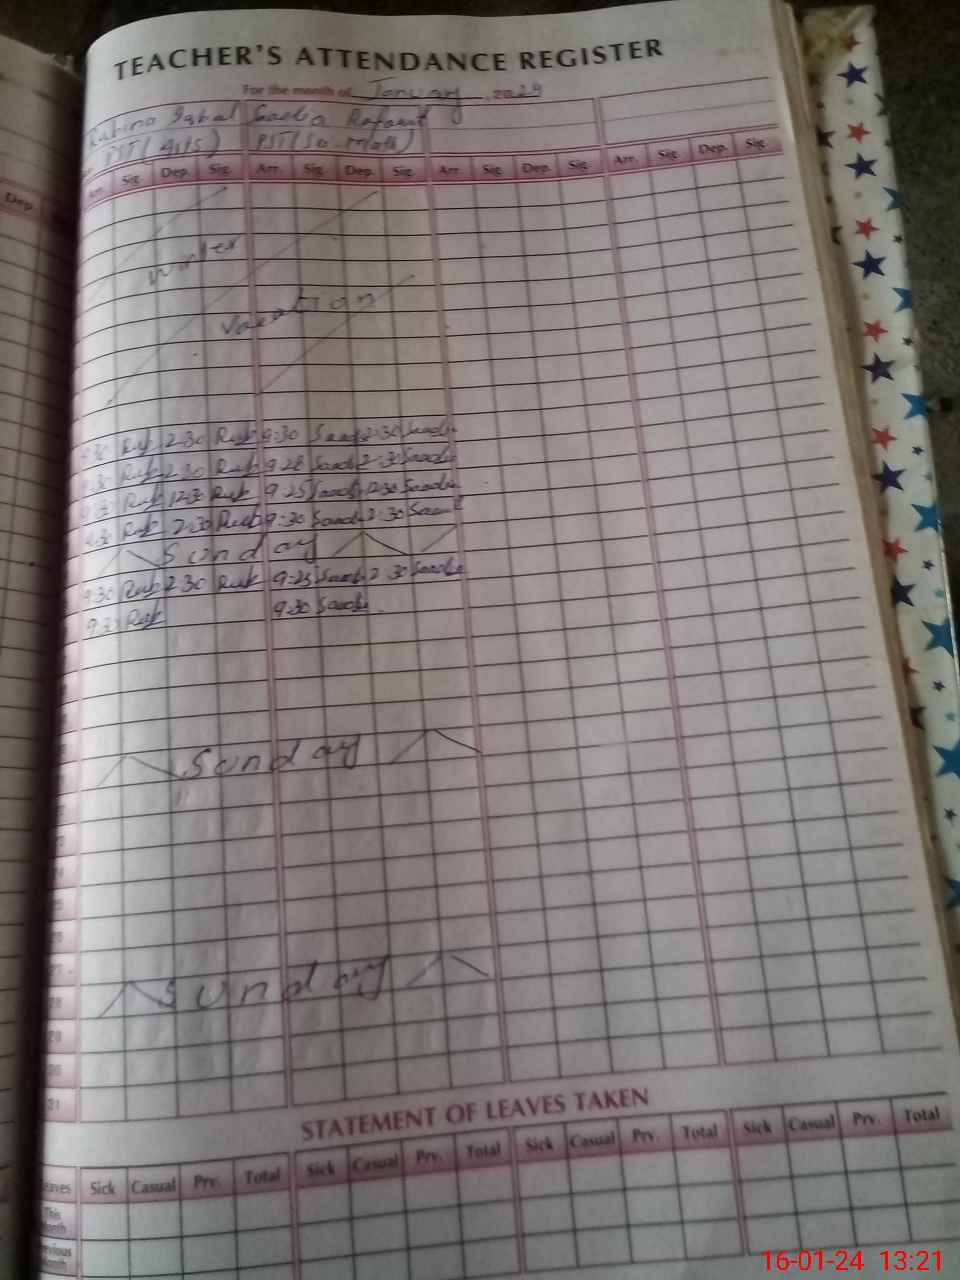 TEACHER'S ATTENDANCE REGISTER
For the month of January 2024
Rubina Iqbal Saadia Rafaout
PST (Arts) PST (Sc. math)
Dep.
Arr. Sig. Dep. Sig. Arr. Sig. Dep. Sig. Arr. Sig. Dep. Sig. Arr. Sig. Dep. Sig.
Winter
Vacation
Rub 2:30 Rub 9:30 Saadi 2:30 Saadi
Rub 2:30 Rub 9:28 Saadi 2:30 Saadi
Rub 12:30 Rub 9:25 Saadi 12:30 Saadi
Rub 2:30 Rub 9:30 Saadi 2:30 Saadi
Sunday
9:30 Rub 2:30 Rub 9:25 Saadi 2:30 Saadi
9:30 Rub 9:30 Saadi
Sunday
27
28
Sunday
29
30
31
STATEMENT OF LEAVES TAKEN
Leaves Sick Casual Prv. Total Sick Casual Prv. Total Sick Casual Prv. Total Sick Casual Prv. Total
This
Month
Previous
Month
16-01-24 13:21